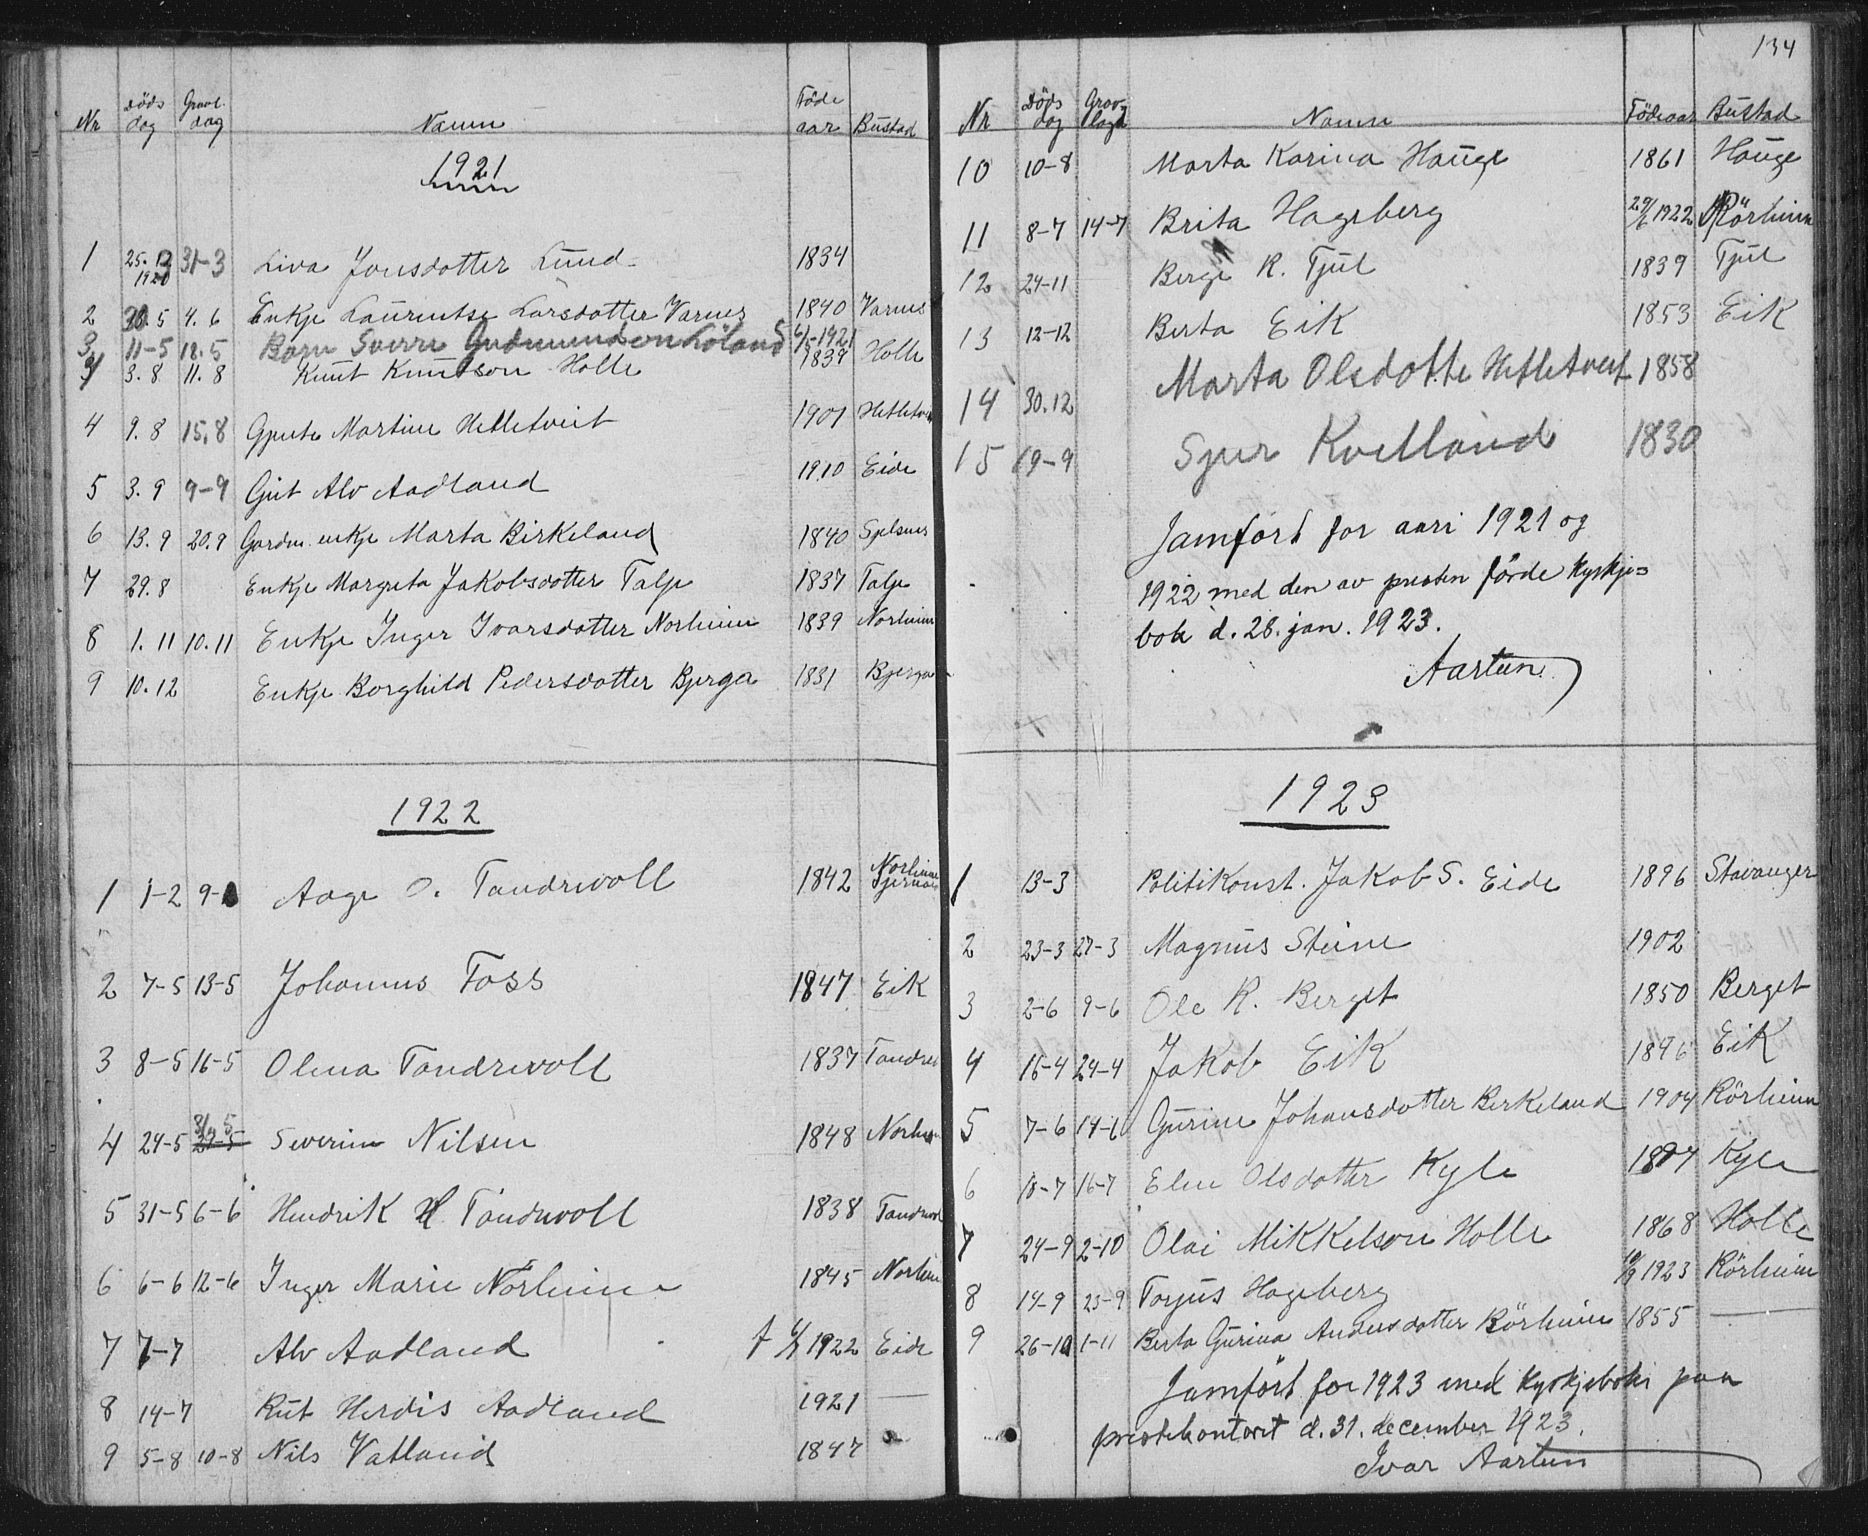 Nr Døds dag Gravl. dag Namn Føde aar Bustad
1921
1 25.12 1920 31-3 Liva Jonsdotter Lund 1834
2 30.5 4.6 Enkje Laurentse Larsdotter Varnes 1840 Varnes
3 11-5 18.5 Barn Sverre Gudmundson Löland 6/5-1921
3.8 11.8 Knut Knudson Holle 1837 Holle
4 9.8 15.8 Gjente Martine Hetletveit 1901 Hetletvei
5 3.9 9-9 Gut Alv Aadland 1910 Eide
6 13.9 20.9 Gardm. enkje Marta Birkeland 1840 Spelsnes
7 29.8 Enkje Margreta Jakobsdotter Talje 1837 Talje
8 1.11 10.11 Enkje Inger Ivarsdotter Norheim 1839 Norheim
9 10.12 Enkje Borghild Pedersdotter Bjerga 1831 Bjerga
1922
1 1-2 9- Aage O. Tandrevoll 1842 Norheim
2 7-5 13-5 Johannes Foss 1847 Eik
3 8-5 16-5 Olena Tandrevoll 1837 Tandre
31/5
4 24-5 27-5 Severine Nilsen 1848 Norheim
5 31-5 6-6 Hendrik H. Tandrevoll 1838 Tandrevoll
6 6-6 12-6 Inger Marie Norheim 1845 Norheim
7 7-7 Alv Aadland 1922 Eide
8 14-7 Rut Herdis Aadland 1921 —
9 5-8 10-8 Nils Vatland 1847
134
Nr Døds dag Grav-lagd Namn Födeaar Bustad
10 10-8 Marta Karina Hauge 1861 Hauge
11 8-7 14-7 Brita Hageberg 29/6 1922 Rörheim
12 24-11 Berge R. Tjul 1839 Tjul
13 12-12 Berta Eik 1853 Eik
14 30.12 Marta Olsdotte Hetletveit 1858
15 19-9 Sjur Kvelland 1830
Jamført for aari 1921 og
1922 med den av presten förde kyrkje-
bok d. 28. jan. 1923.
Aartun
1923
1 13-3 Politikonst. Jakob S. Eide 1896 Stavanger
2 23-3 27-3 Magnus Steine 1902
3 2-6 9-6 Ole R. Berget 1850 Berget
4 15-4 24-4 Jakob Eik 1896 Eik
5 7-6 14-6 Gurine Johansdotter Berkeland 1904 Rörheim
6 10-7 16-7 Elen Olsdotter Kyle Kyle
7 24-9 2-10 Olai Mikkelson Holle 1868 Holle
8 14-9 23-9 Torjus Hageberg 10/9 1923 Rörheim
9 26-10 1-11 Berta Gurina Andersdotter Rörheim 1855 —
Jamfört for 1923 med kyrkjeboki paa
prestekontoret d. 31. december 1923.
Ivar Aartun